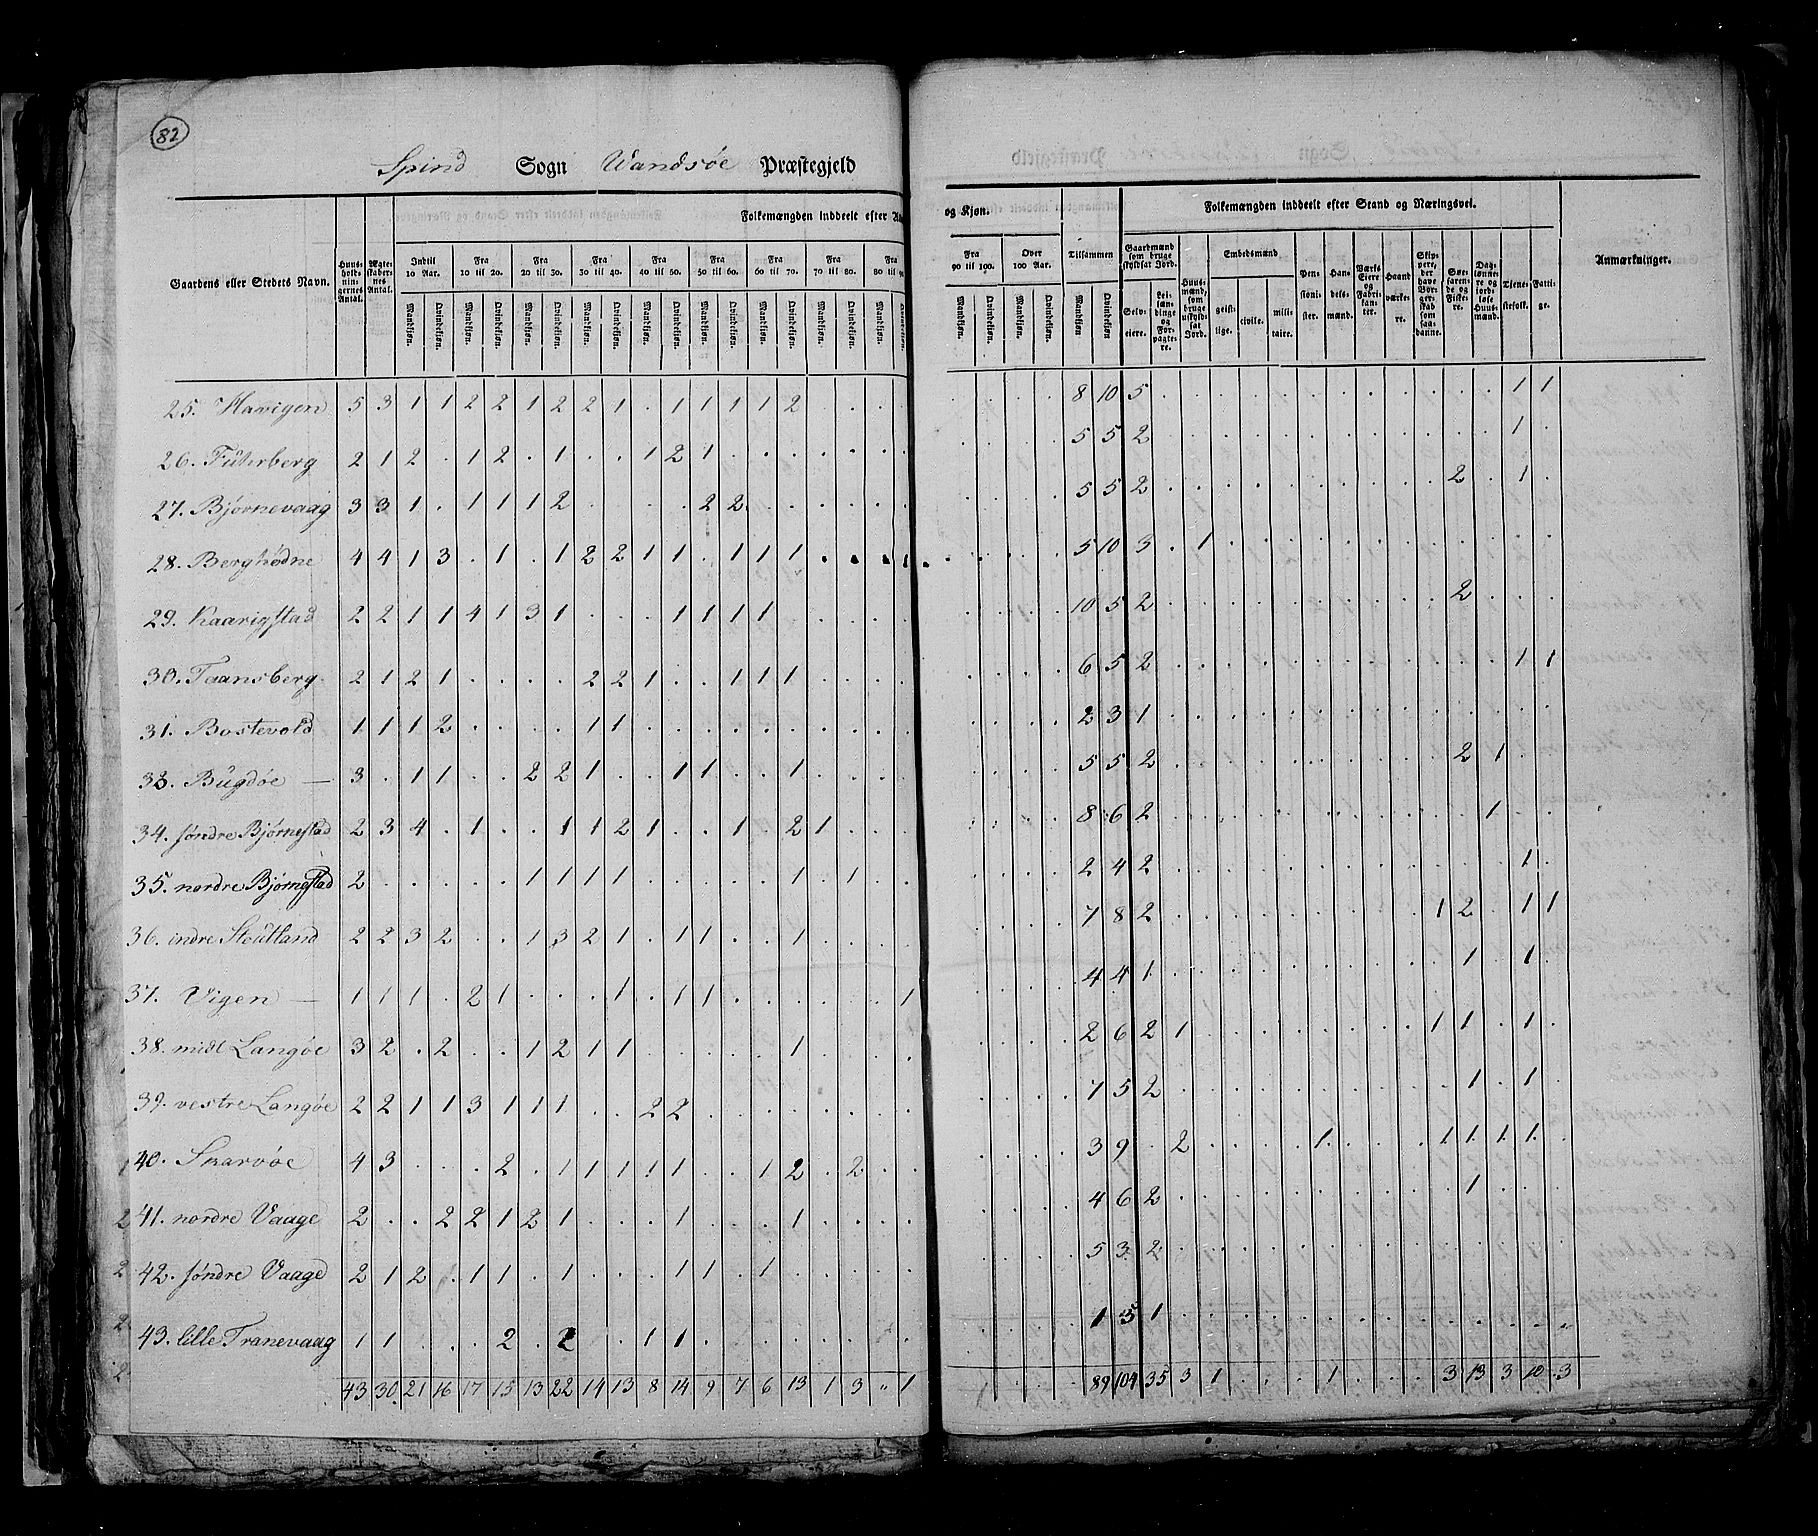 82
Spind Sogn Wandsøe Præstegjeld
Gaardens eller Stedets Navn. Huus-holdnin-gernes Antal. Ægte-skaber-nes Antal. Folkemængden inddeelt efter A og Kjøn. Folkemængden inddeelt efter Stand og Næringsvei. Anmærkninger.
Indtil 10 Aar. Fra 10 til 20. Fra 20 til 30. Fra 30 til 40. Fra 40 til 50. Fra 50 til 60. Fra 60 til 70. Fra 70 til 80. Fra 80 til 9 Fra 90 til 100. Over 100 Aar. Tilsammen
Mandkjøn. Qvindekjøn. Mandkjøn. Qvindekjøn. Mandkjøn. Qvindekjøn. Mandkjøn. Qvindekjøn. Mandkjøn. Qvindekjøn. Mandkjøn. Qvindekjøn. Mandkjøn. Qvindekjøn. Mandkjøn. Qvindekjøn. Mandkjøn. Qvindekjøn. Mandkjøn. Qvindekjøn. Mandkjøn. Qvindekjøn. Mandkjøn Qvindekjøn.
Gaardmænd som bruge skyldsat Jord. Selv-eiere. Lei-lændinge og For-pagtere. Huus-mænd, som bruge uskyldsat Jord. Embedsmænd geist-lige. civile. mili-taire. Pen-sioni-ster. Han-dels-mænd. Værks-Eiere og Fabri-kan-ter. Haand værke-re. Skip-pere, der have Bor-ger-skab som saa-danne. Søe-farende og Fiske-re. Dag-lønne-re og jord-løse Huus-mænd. Tjene-stefolk. Fatti-ge.
25. Havigen 5 3 1 1 2 2 1 2 2 1 . 1 1 1 1 2 . . . . . . . 8 10 5 . . . . . . . . . . . . . 1 1
26. Fuhrberg 2 1 2 . 1 2 . 1 . . 1 2 1 . . . . . . . . . . 5 5 2 . . . . . . . . . . . . . 1 .
27. Bjørnevaag 3 3 1 . 1 1 1 2 . . . . 2 2 . . . . . . . . . 5 5 2 . . . . . . . . . . . 2 . 1 .
28. Berghødne 4 4 1 3 . 1 . 1 2 2 1 1 . 1 1 1 . . . 1 . . . . 5 10 3 . 1 . . . . . . . . . . . . .
29. Kaarigstad 2 2 1 1 4 1 3 1 . . . 1 1 1 1 . . . . . . . . 10 5 2 . . . . . . . . . . . 2 . . .
30. Taansberg 2 1 2 1 . . . . 2 2 1 . . 1 1 1 . . . . . . . 6 5 2 . . . . . . . . . . . . . 1 1
31. Bostevold 1 1 1 2 . . . . 1 1 . . . . . . . . . . . . . 2 3 1 . . . . . . . . . . . . . . .
33. Bugdøe — 3 . 1 1 . . 2 2 1 . . 1 1 . . 1 . . . . . . . 5 5 2 . . . . . . . . . . . 2 1 . .
34. søndre Bjørnestad 2 3 4 . 1 . . 1 1 2 1 . . 1 . 2 1 . . . . . . 8 6 2 . . . . . . . . . . . . 1 . .
35. nordre Bjørnestad 2 . . . . . 1 1 1 1 . . . . . 1 . 1 . . . . . 2 4 2 . . . . . . . . . . . . . 1 .
36. indre Steutland 2 2 3 2 . . 1 3 2 1 . 1 1 . . 1 . . . . . . . 7 8 2 . . . . . . . . . . 1 2 . 1 1
37. Vigen — 1 1 1 . 2 1 . . . 1 . 1 1 . . . . . . 1 . . . 4 4 1 . . . . . . . . . . . 1 . 1 .
38. midt Langøe 3 2 . 2 . . 1 2 1 1 . . . . . 1 . . . . . . . 2 6 2 1 . . . . . . . . . 1 1 . 1 .
39. vestre Langøe 2 2 1 1 3 1 1 1 . . 2 2 . . . . . . . . . . . 7 5 2 . . . . . . . . . . . 1 . 1 .
40. Skarvøe 4 3 . . . 2 . 1 1 1 1 1 . . 1 2 . 2 . . . . . 3 9 . 2 . . . . 1 . . . 1 1 1 1 .
41. nordre Vaage 2 . . 2 2 1 2 1 . . . 1 . . . 1 . . . . . . . 4 6 2 . . . . . . . . . . . 1 . . .
42. søndre Vaage 2 1 2 . 1 1 . 1 . . . 1 1 . 1 . . . . . . . . 5 3 2 . . . . . . . . . . . . . . .
43. lille Tranevaag 1 1 . . . 2 . 2 . . 1 1 . . . . . . . . . . . 1 5 1 . . . . . . . . . . . . . . „
43 30 21 16 17 15 13 22 14 13 8 14 9 7 6 13 1 3 „ 1 . . . . 89 104 35 3 1 . . . 1 . . . 3 13 3 10 3